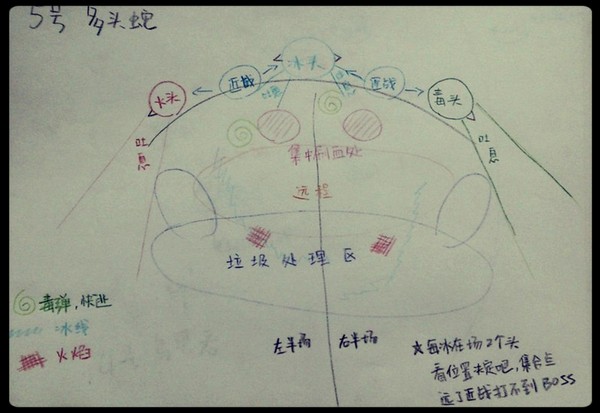 5号 多头蛇
冰头
近战
近战
火头
毒头
吐息
吐息
吐息
吐息
集中刷血处
远程
垃圾处理区
毒弹,快进
冰线
火焰
左半场
右半场
☆每冰在场2个头
看位置决定吧,集合点
远了近战打不到BOSS